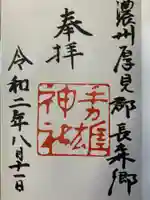 濃州厚見郡長森郷
奉拝
手力雄神社
令和二年八月十一日